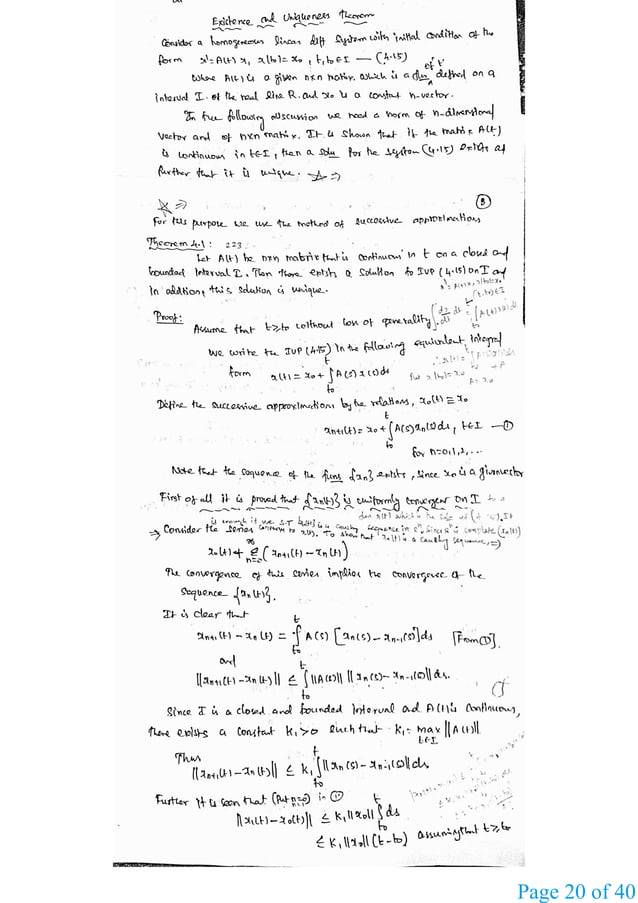 Existence and Uniqueness Theorem
Consider a homogeneous linear diff system with initial condition of the
form x' = A(t) x, x(t₀) = x₀, t, t₀ ∈ I — (4.15)
Where A(t) is a given n×n matrix which is a fun of 't' defined on a
interval I. of the real line R. and x₀ is a constant n-vector.
In the following discussion we need a norm of n-dimensional
vector and of n×n matrix. It is shown that if the matrix A(t)
is continuous in t∈I, then a soln for the system (4.15) exists and
further that it is unique. ☆ ⇒
8
☆ ⇒
For this purpose we use the method of successive approximations
Theorem 4.1: 223
Let A(t) be n×n matrix that is continuous in t on a closed and
bounded interval I. Then there exists a solution to IVP (4.15) on I and
In addition, this solution is unique.
Proof:
Assume that t≥t₀ without loss of generality.
We write the IVP (4.15) in the following equivalent integral
form x(t) = x₀ + ∫_{t₀}^{t} A(s) x(s) ds
Define the successive approximations by the relations, x₀(t) ≡ x₀
xₙ₊₁(t) = x₀ + ∫_{t₀}^{t} A(s) xₙ(s) ds, t∈I — ①
for n=0,1,2,...
Note that the sequence of the funs {xₙ} exists, since x₀ is a given vector
First of all it is proved that {xₙ(t)} is uniformly convergent on I to a
⇒ Consider the series
x₀(t) + Σ_{n=0}^{∞} (xₙ₊₁(t) − xₙ(t))
The convergence of this series implies the convergence of the
Sequence {xₙ(t)}.
It is clear that
xₙ₊₁(t) − xₙ(t) = ∫_{t₀}^{t} A(s) [xₙ(s) − xₙ₋₁(s)] ds [From ①].
and
||xₙ₊₁(t) − xₙ(t)|| ≤ ∫_{t₀}^{t} ||A(s)|| ||xₙ(s) − xₙ₋₁(s)|| ds.
Since I is a closed and bounded interval and A(t) is continuous,
there exists a constant K₁>0 such that K₁ = max_{t∈I} ||A(t)||
Thus
||xₙ₊₁(t) − xₙ(t)|| ≤ K₁ ∫_{t₀}^{t} ||xₙ(s) − xₙ₋₁(s)|| ds
Further it is seen that (Put n=0) in ①
||x₁(t) − x₀(t)|| ≤ K₁ ||x₀|| ∫_{t₀}^{t} ds
≤ K₁ ||x₀|| (t−t₀) assuming that t≥t₀
Page 20 of 40